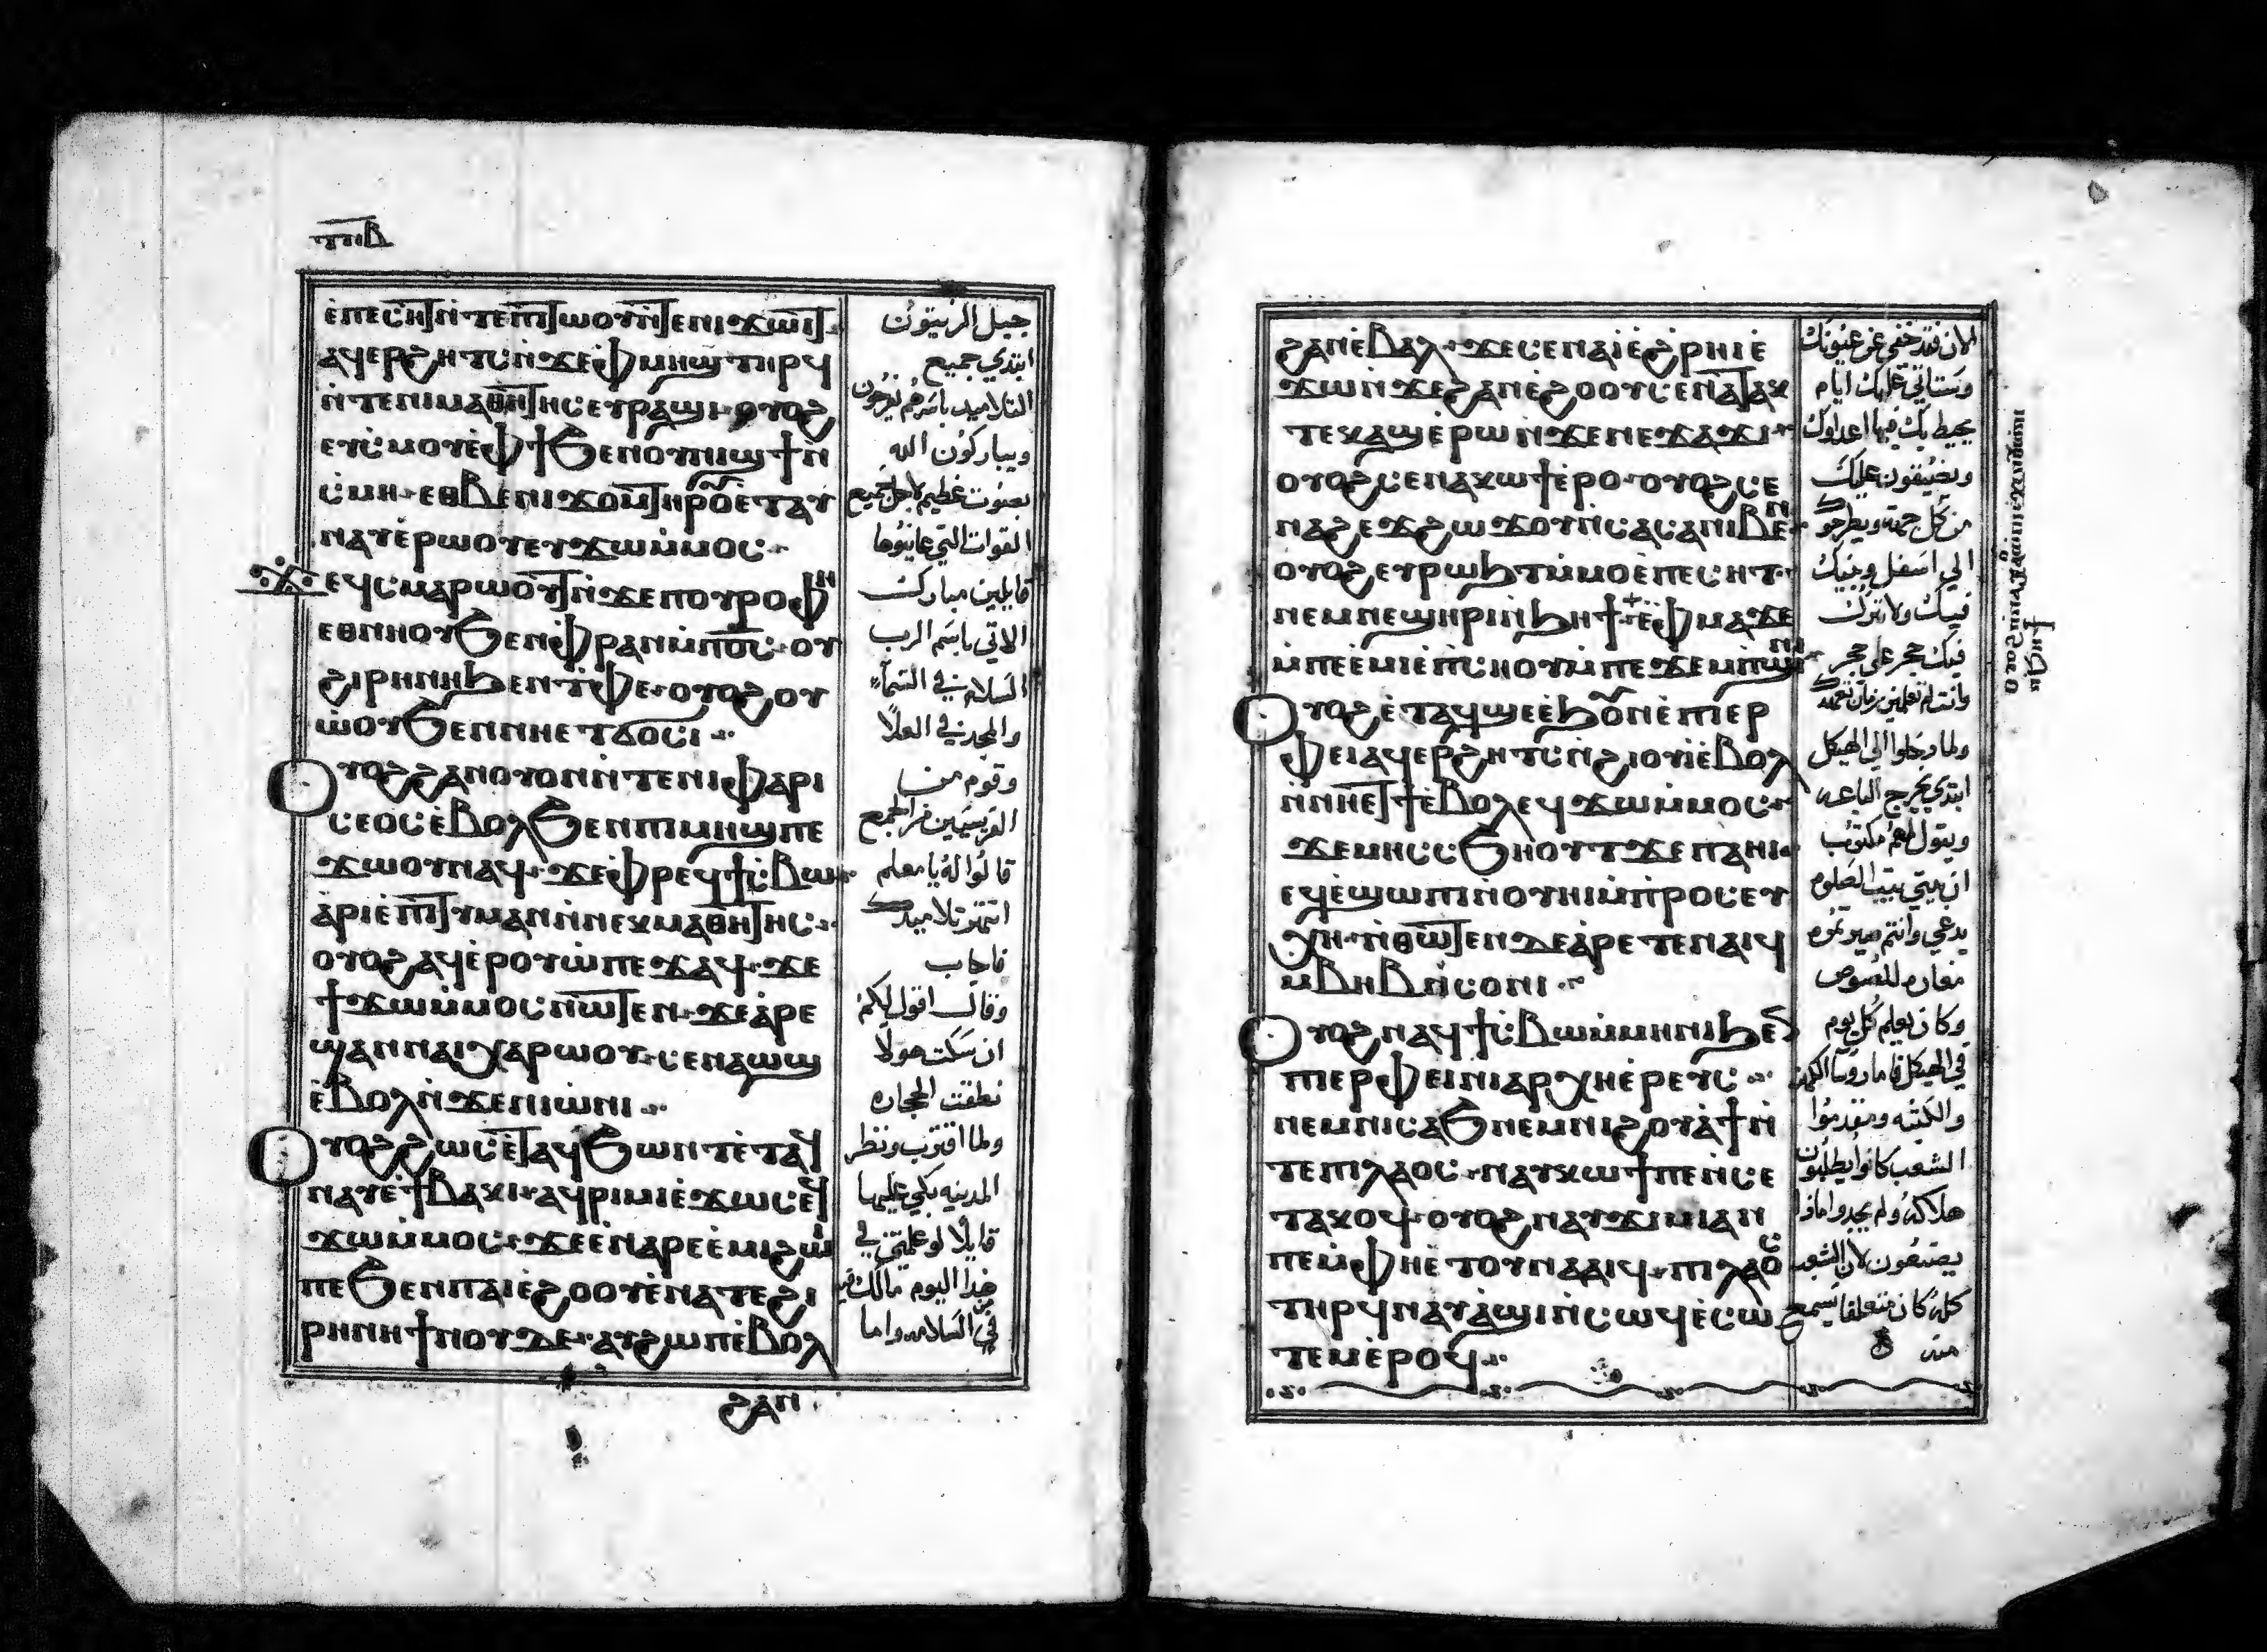 ⲧⲡⲃ
ⲉ̀ⲡⲉⲥⲏⲧ ⲛ̀ⲧⲉⲡⲓⲧⲱⲟⲩ ⲛ̀ⲧⲉⲛⲓϫⲱⲓⲧ
ⲁϥⲉⲣϩⲏⲧⲥ ⲛ̀ϫⲉⲫ̀ⲙⲏϣ ⲧⲏⲣϥ
ⲛ̀ⲧⲉⲛⲓⲙⲁⲑⲏⲧⲏⲥ ⲉⲩⲣⲁϣⲓ ⲟⲩⲟϩ
ⲉⲩⲥ̀ⲙⲟⲩ ⲉ̀ⲫϯ ϧⲉⲛⲟⲩⲛⲓϣϯ ⲛ̀
ⲥ̀ⲙⲏ ⲉⲑⲃⲉⲛⲓϫⲟⲙ ⲧⲏⲣⲟⲩ ⲉⲧⲁⲩ
ⲛⲁⲩ ⲉ̀ⲣⲱⲟⲩ ⲉⲩϫⲱ ⲙ̀ⲙⲟⲥ
ⲉϥⲥⲙⲁⲣⲱⲟⲩⲧ ⲛ̀ϫⲉⲡⲟⲩⲣⲟ ⲫⲏ
ⲉⲑⲛⲏⲟⲩ ϧⲉⲛⲫ̀ⲣⲁⲛ ⲙ̀ⲡⲟ̅ⲥ̅ ⲟⲩ
ϩⲓⲣⲏⲛⲏ ϧⲉⲛⲧ̀ⲫⲉ ⲟⲩⲟϩ ⲟⲩ
ⲱ̀ⲟⲩ ϧⲉⲛⲛⲏⲉⲧϭⲟⲥⲓ
ⲟⲩⲟϩ ϩⲁⲛⲟⲩⲟⲛ ⲛ̀ⲧⲉⲛⲓⲫⲁⲣⲓ
ⲥⲉⲟⲥ ⲉ̀ⲃⲟⲗ ϧⲉⲛⲡⲓⲙⲏϣ ⲡⲉ
ϫⲱⲟⲩ ⲛⲁϥ ϫⲉ ⲫ̀ⲣⲉϥϯⲥ̀ⲃⲱ
ⲁ̀ⲣⲓⲉ̀ⲡⲓⲧⲓⲙⲁⲛ ⲛ̀ⲛⲉⲕⲙⲁⲑⲏⲧⲏⲥ
ⲟⲩⲟϩ ⲁϥⲉ̀ⲣⲟⲩⲱ̀ ⲡⲉϫⲁϥ ϫⲉ
ϯϫⲱ ⲙ̀ⲙⲟⲥ ⲛⲱⲧⲉⲛ ϫⲉ ⲁ̀ⲣⲉ
ϣⲁⲛⲛⲁⲓ ⲭⲁⲣⲱⲟⲩ ⲥⲉⲛⲁⲱϣ
ⲉ̀ⲃⲟⲗ ⲛ̀ϫⲉⲛⲓⲱ̀ⲛⲓ
ⲟⲩⲟϩ ϩⲱⲥ ⲉ̀ⲧⲁϥϧⲱⲛⲧ ⲉ̀ⲧⲁϥ
ⲛⲁⲩ ⲉ̀ϯⲃⲁⲕⲓ ⲁϥⲣⲓⲙⲓ ⲉ̀ϫⲱⲥ ⲉϥ
ϫⲱ ⲙ̀ⲙⲟⲥ ϫⲉ ⲉ̀ⲛⲁⲣⲉⲉ̀ⲙⲓ ϩⲱⲓ
ⲡⲉ ϧⲉⲛⲡⲁⲓⲉ̀ϩⲟⲟⲩ ⲉ̀ⲛⲁⲧⲉϩⲓ
ⲣⲏⲛⲏ ϯⲛⲟⲩ ⲇⲉ ⲁⲩϩⲱⲡ ⲉ̀ⲃⲟⲗ
ϩⲁⲛ
جبل الزيتون
ابتدي جميع
التلاميد باسرهم يفرحون
ويباركون الله
بصوت عظيم لاجل جميع
القوات التي عاينوها
قايلين مبارك
الاتي باسم الرب
السلام في السمآء
والمجد في العلا
وقوم من
الفريسيين من الجمع
قالوا له يا معلم
انتهر تلاميدك
فاجاب
وقال اقول لكم
ان سكت هولا
نطقت الحجاره
ولما اقترب ونظر
المدينه بكي عليها
قايلا لو علمتي في
هدا اليوم مالك فيه
من السلامه واما
ϩⲁⲛⲉ̀ⲃⲁⲗ ϫⲉ ⲥⲉⲛⲁⲓ̀ ⲉ̀ϩⲣⲏⲓ ⲉ̀
ϫⲱ ⲛ̀ϫⲉϩⲁⲛⲉ̀ϩⲟⲟⲩ ⲥⲉⲛⲁⲧⲁⲕ
ⲧⲉ ⲕⲁϣ ⲉ̀ⲣⲱ ⲛ̀ϫⲉⲛⲉϫⲁϫⲓ
ⲟⲩⲟϩ ⲥⲉⲛⲁⲕⲱϯ ⲉ̀ⲣⲟ ⲟⲩⲟϩ ⲥⲉ
ⲛⲁϩⲉϫϩⲱϫⲟⲩ ⲛ̀ⲥⲁⲥⲁ ⲛⲓⲃⲉⲛ
ⲟⲩⲟϩ ⲉⲩⲣⲱϧⲧ ⲙ̀ⲙⲟ ⲉ̀ⲡⲉⲥⲏⲧ
ⲛⲉⲙ ⲛⲉϣⲏⲣⲓ ⲛ̀ϧⲏϯ ⲉ̀ⲫ̀ⲙⲁ ϫⲉ
ⲙ̀ⲡⲉⲉ̀ⲙⲓ ⲉ̀ⲡ̀ⲥⲏⲟⲩ ⲛ̀ⲧⲉϫⲉⲙⲡϣⲓⲛⲓ
ⲟⲩⲟϩ ⲉ̀ⲧⲁϥϣⲉ ⲉ̀ϧⲟⲩⲛ ⲉ̀ⲡⲓⲉⲣ
ⲫⲉⲓ ⲁϥⲉⲣϩⲏⲧⲥ ⲛ̀ϩⲓⲟⲩⲓ̀ ⲉ̀ⲃⲟⲗ
ⲛ̀ⲛⲏⲉⲧϯ ⲉ̀ⲃⲟⲗ ⲉϥϫⲱ ⲙ̀ⲙⲟⲥ
ϫⲉ ⲙⲏⲥ ⲥ̀ϧⲏⲟⲩⲧ ϫⲉ ⲡⲁⲏⲓ
ⲉϥⲉ̀ϣⲱⲡⲓ ⲛ̀ⲟⲩⲏⲓ ⲙ̀ⲡ̀ⲣⲟⲥⲉⲩ
ⲭⲏ ⲛ̀ⲑⲱⲧⲉⲛ ⲇⲉ ⲁ̀ⲣⲉⲧⲉⲛⲁⲓϥ
ⲙ̀ⲃⲏⲃ ⲛ̀ⲥⲟⲛⲓ
ⲟⲩⲟϩ ⲛⲁϥϯⲥ̀ⲃⲱ ⲙ̀ⲙⲏⲛⲓ ϧⲉⲛ
ⲡⲓⲉⲣⲫⲉⲓ ⲛⲓⲁⲣⲭⲏⲉ̀ⲣⲉⲩⲥ
ⲛⲉⲙ ⲛⲓⲥⲁϧ ⲛⲉⲙ ⲛⲓϩⲟⲩⲁ̀ϯ ⲛ̀
ⲧⲉⲡⲓⲗⲁⲟⲥ ⲛⲁⲩⲕⲱϯ ⲡⲉ ⲛ̀ⲥⲉ
ⲧⲁⲕⲟϥ ⲟⲩⲟϩ ⲛⲁⲩϫⲓⲙⲓ ⲁⲛ
ⲡⲉ ⲙ̀ⲫⲏⲉ̀ⲧⲟⲩⲛⲁⲁⲓϥ ⲡⲓⲗⲁⲟⲥ
ⲧⲏⲣϥ ⲛⲁⲩⲁ̀ϣⲓ ⲛ̀ⲥⲱϥ ⲉ̀ⲥⲱ
ⲧⲉⲙ ⲉ̀ⲣⲟϥ
الان فقد خفي عن عيونك
وستاتي عليك ايام
يحيط بك فيها اعداوك
ويضيقون عليك
من كل جهه ويطرحوك
الي اسفل وبنيك
فيك ولا يترك
فيك حجر علي حجر
وانت لم تعلمين زمان تعهدك
ولما دخلوا الي الهيكل
ابتدي يخرج الباعه
ويقول لهم مكتوب
ان بيتي بيت الصلوه
يدعي وانتم صيرتموه
مغاره للصوص
وكان يعلم كل يوم
في الهيكل فاما روسا الكهنه
والكتبه ومقدموا
الشعب كانوا يطلبون
هلاكه ولم يجدوا ماذا
يصنعون لان الشعب
كله كان متعلقا يسمع
منه